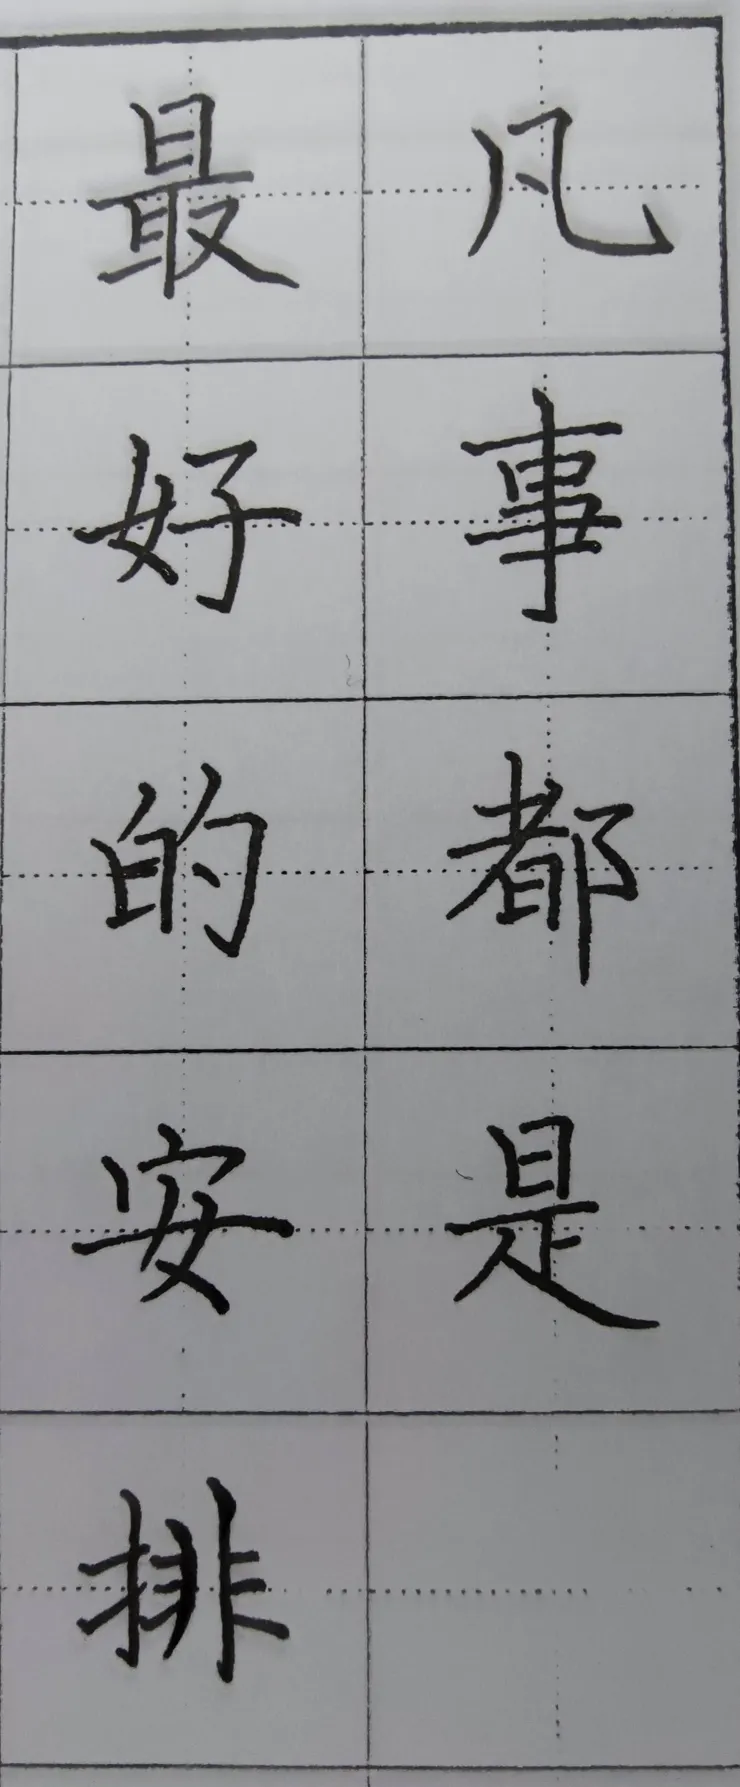 凡事都是
最好的安排